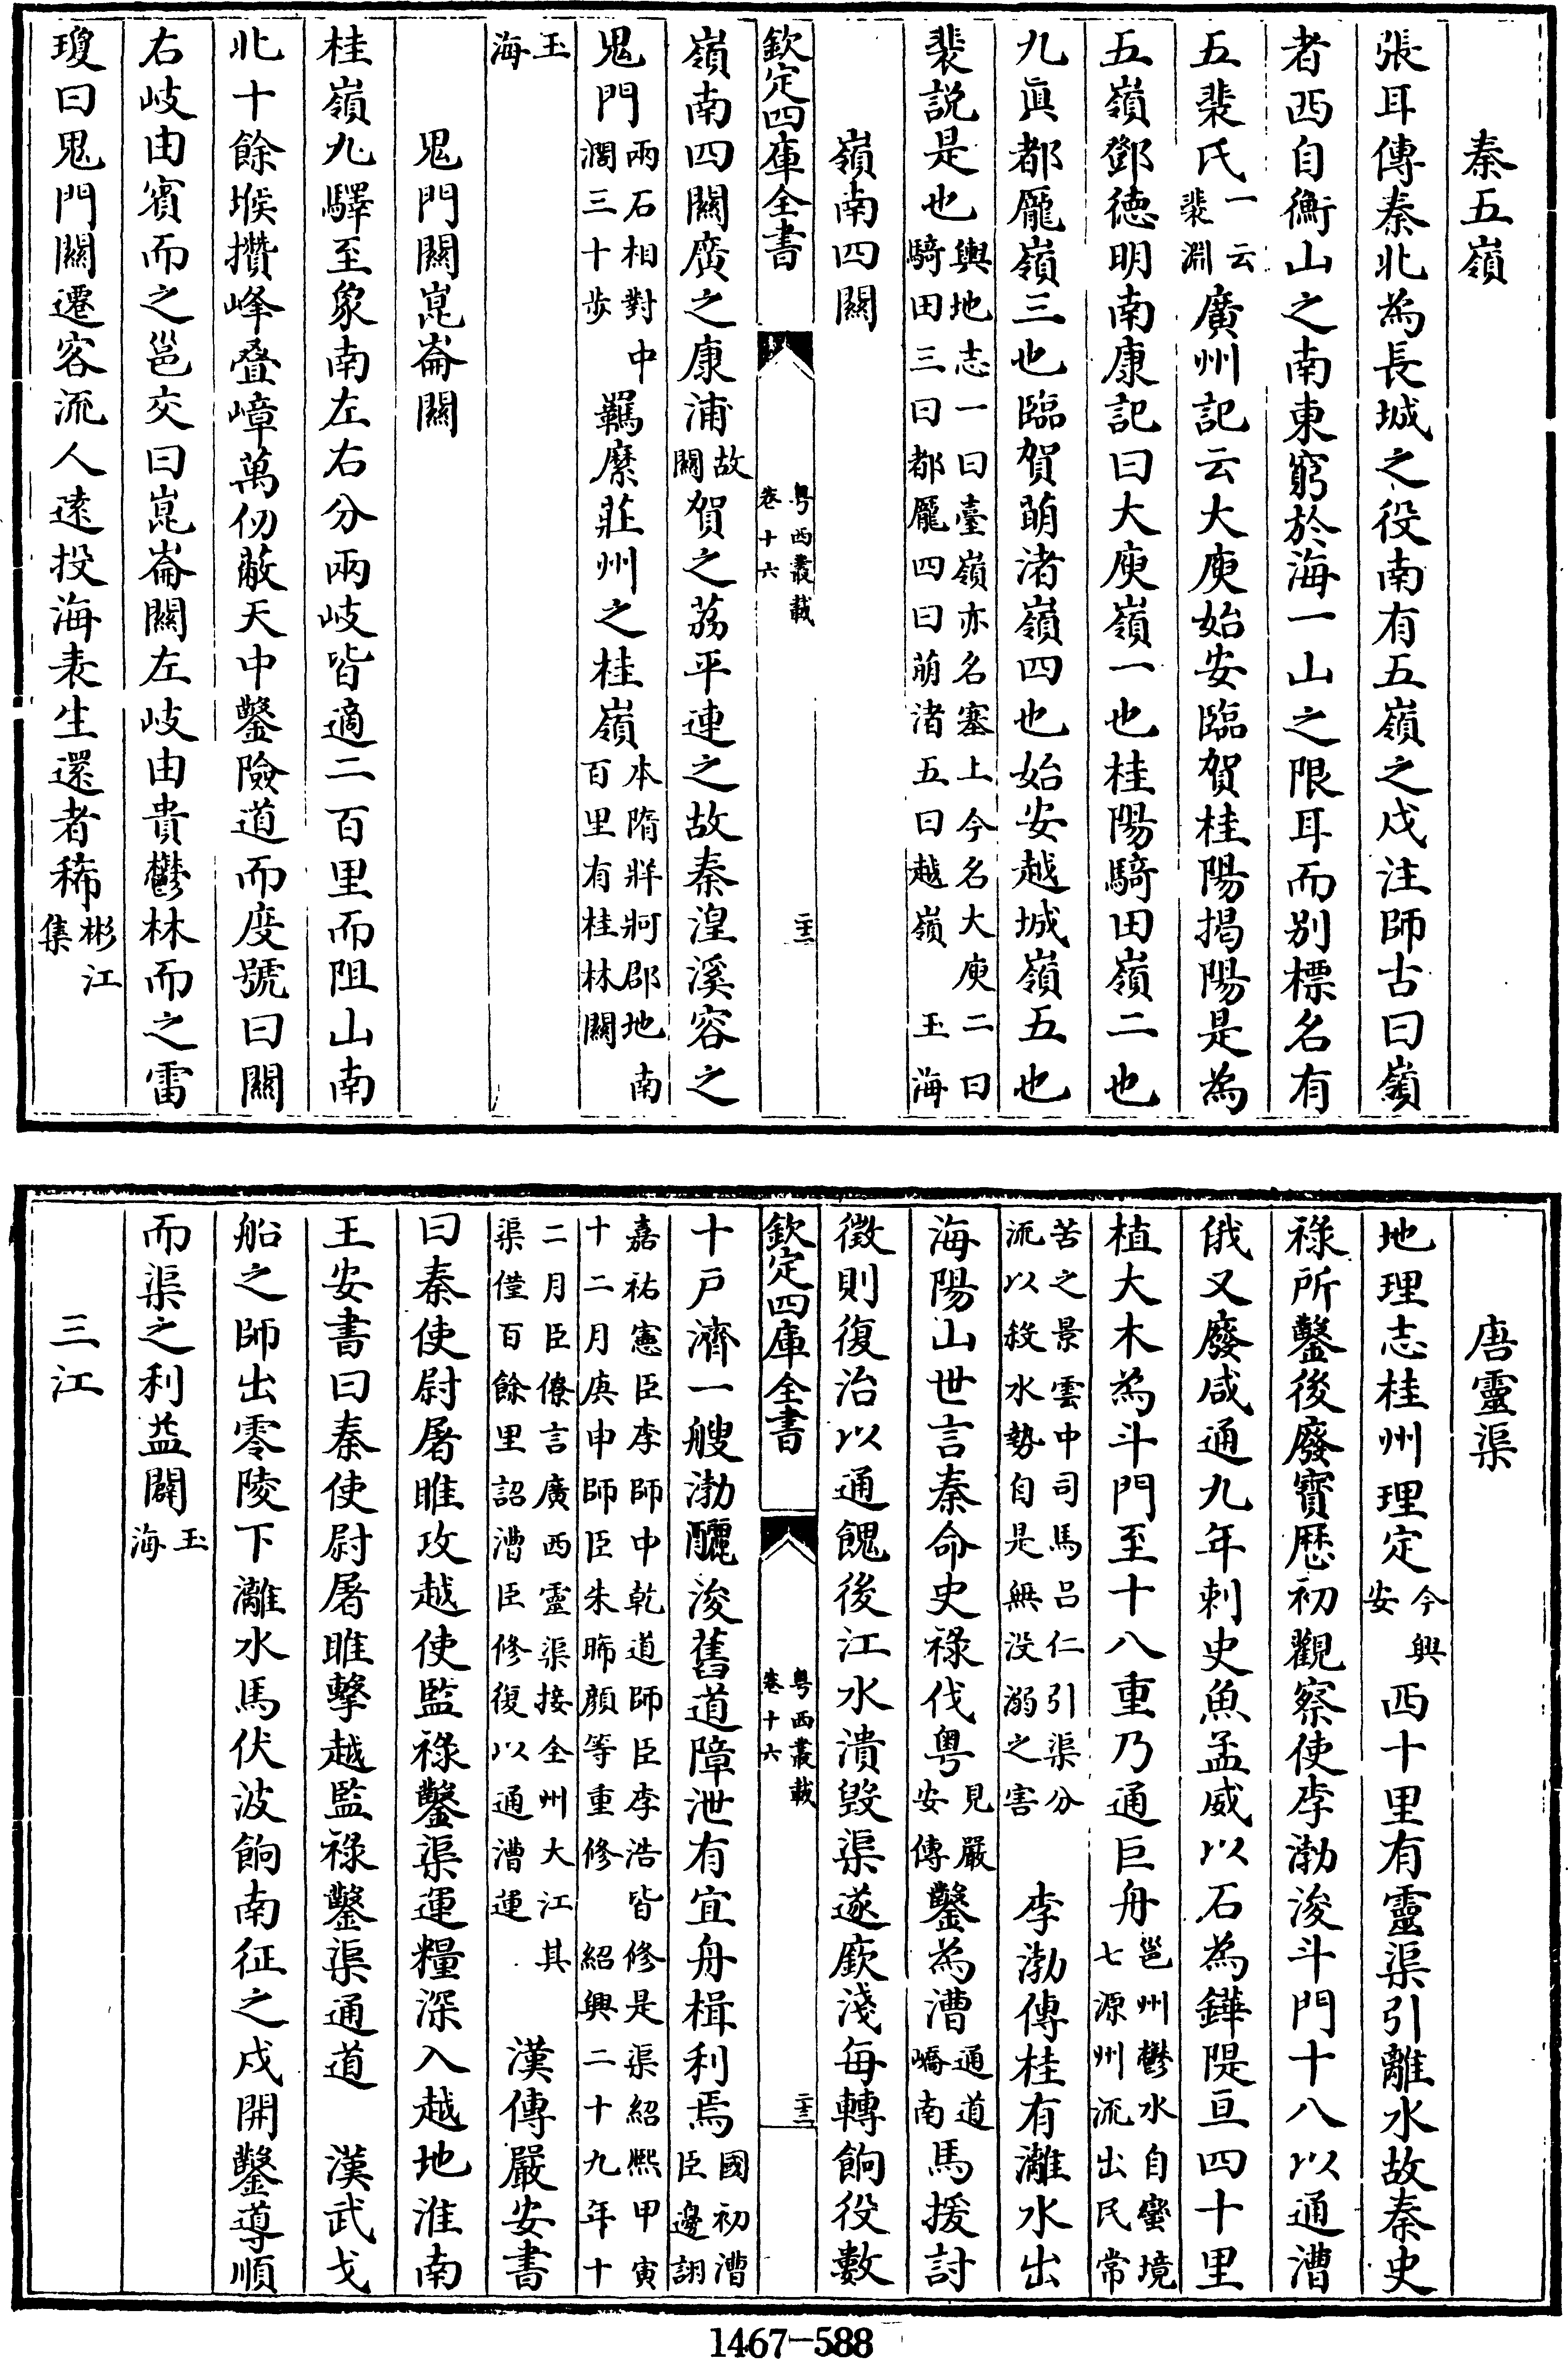 秦五嶺
張耳傳秦北為長城之役南有五嶺之戍注師古曰嶺
者西自衡山之南東窮於海一山之限耳而别標名有
五裴氏一云裴淵廣州記云大庾始安臨賀桂陽揭陽是為
五嶺鄧徳明南康記曰大庾嶺一也桂陽騎田嶺二也
九眞都龎嶺三也臨賀萌渚嶺四也始安越城嶺五也
裴説是也輿地志一曰臺嶺亦名塞上今名大庾二曰騎田三曰都龎四曰萌渚五曰越嶺 玉海
嶺南四闗
欽定四庫全書 粤西叢載卷十六 二十二
嶺南四闗廣之康浦故闗賀之荔平連之故秦湟溪容之
鬼門兩石相對中濶三十歩羈縻莊州之桂嶺本隋牂牁郡地南百里有桂林闗
玉海
鬼門闗崑崙闗
桂嶺九驛至象南左右分兩岐皆適二百里而阻山南
北十餘堠攢峰疊嶂萬仞蔽天中鑿險道而度號曰闗
右岐由賓而之邕交曰崑崙闗左岐由貴鬱林而之雷
瓊曰鬼門闗遷客流人逺投海表生還者稀彬江集
唐靈渠
地理志桂州理定今興安西十里有靈渠引離水故秦史
禄所鑿後廢寳歴初觀察使李渤浚斗門十八以通漕
俄又廢咸通九年刺史魚孟威以石為鏵隄亘四十里
植大木為斗門至十八重乃通巨舟邕州鬱水自蠻境七源州流出民常
苦之景雲中司馬吕仁引渠分流以殺水勢自是無没溺之害 李渤傳桂有灕水出
海陽山世言秦命史禄伐粤見嚴安傳鑿為漕通道嶠南馬援討
徴則復治以通餽後江水潰毁渠遂廞淺每轉餉役數
欽定四庫全書 粤西叢載卷十六 二十三
十戸濟一艘渤釃浚舊道障泄有宜舟楫利焉國初漕臣邊詡
嘉祐憲臣李師中乾道師臣李浩皆修是渠紹熈甲寅十二月庚申師臣朱晞顔等重修 紹興二十九年十
二月臣僚言廣西靈渠接全州大江其渠僅百餘里詔漕臣修復以通漕運 漢傳嚴安書
曰秦使尉屠睢攻越使監禄鑿渠運糧深入越地淮南
王安書曰秦使尉屠睢擊越監禄鑿渠通道 漢武戈
船之師出零陵下灕水馬伏波餉南征之戍開鑿導順
而渠之利益闢玉海
三江
1467-588